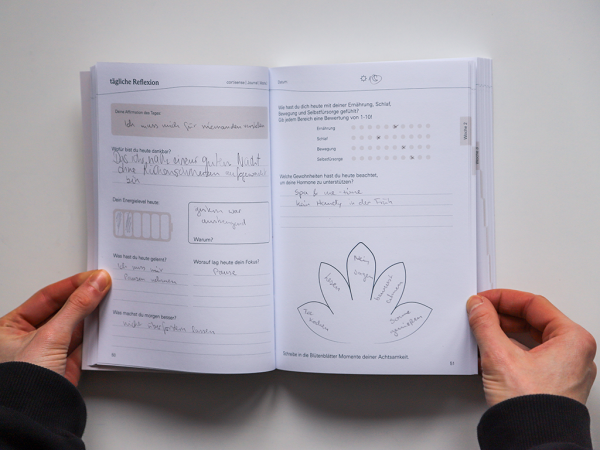 tägliche Reflexion
Deine Affirmation des Tages:
Ich muss mich für niemanden
Wofür bist du heute dankbar?
nach einer guten Nacht
ohne Rückenschmerzen
Dein Energielevel heute:
gestern war
anstrengend
Warum?
Was hast du heute gelernt?
Ich muss mir
Pausen nehmen
Worauf lag heute dein Fokus?
Pause
Was machst du morgen besser?
nicht lassen
50
Datum:
Wie hast du dich heute mit deiner Ernährung, Schlaf,
Bewegung und Selbstfürsorge gefühlt?
Gib jedem Bereich eine Bewertung von 1-10!
Ernährung
Schlaf
Bewegung
Selbstfürsorge
Woche 2
Welche Gewohnheiten hast du heute beachtet,
um deine Hormone zu unterstützen?
Spa & me-time
kein Handy in der Früh
Tee
trinken
lesen
Mein
Sonne
genießen
Schreibe in die Blütenblätter Momente deiner Achtsamkeit.
51